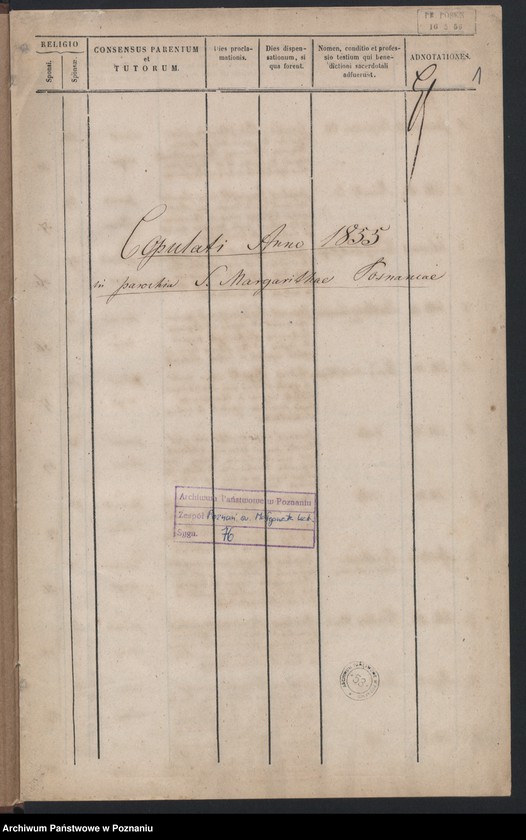 RELIGIO
Sponsi.
Sponsae.
CONSENSUS PARENTUM
et
TUTORUM.
Dies procla-
mationis.
Dies dispen-
sationum, si
qua forent.
Nomen, conditio et profes-
sio testium qui bene-
dictioni sacerdotali
adfuerint.
ADNOTATIONES.
1
Copulati Anno 1855
in parochia S. Margarithae Posnaniae
Archiwum Państwowe w Poznaniu
Zespół Poznań św. Małgorzata
Sygn. 76
53
Archiwum Państwowe w Poznaniu